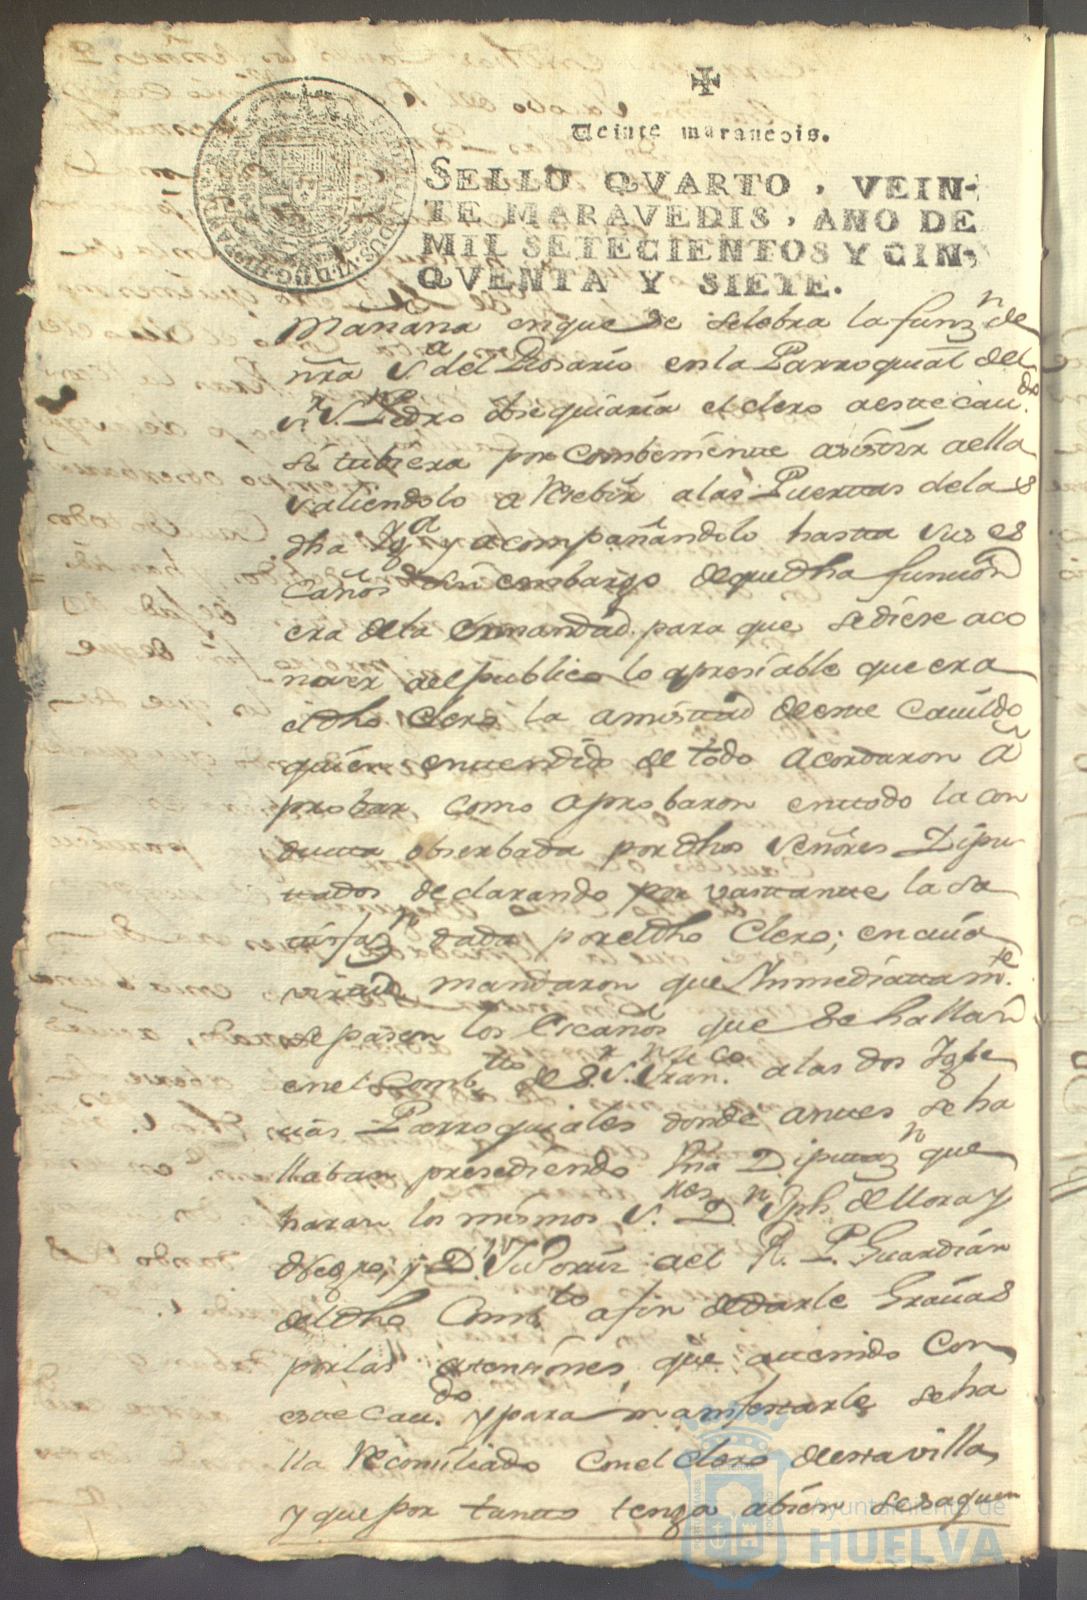 Veinte maravedis.
SELLO QVARTO, VEIN-
TE MARAVEDIS, AÑO DE
MIL SETECIENTOS Y CIN-
QVENTA Y SIETE.
mañana enque se selebra la funzn de
nra Sa del Rosario enla Parroquial del
sr Sn Pedro obsequiaria el clero aeste Cavdo
si tubiera por combeniente asistir aella
saliendolo a Resebir alas Puertas dela
dha Yga y acompañandolo hasta sus es
caños sin embargo dequedha funcion
era dela ermandad para que sediese aco
noser alpublico lo apresiable que era
eldho Clero la amistad deeste Cavildo
quien entendido de todo acordaron a
probar como aprobaron entodo la con
ducta obserbada pordhos señores Dipu
tados declarando por vastante la sa
tisfazn dada poreldho Clero; encuia
virtud mandaron que Inmediatamte
sepasen los Escaños que sehallan
enel Combto de Sr Sn Franco alas dos Igle
sias Parroquiales donde antes seha
llaban presediendo Vna Diputazn que
haran los mismos Sres Dn Jph de Mora y
Negro, y Dn Victoriz al R. P. Guardian
deldho Combto afin dedarle Grasias
porlas atensiones que atenido con
este Cavdo y para manifestarle seha
lla Reconsiliado conel clero deesta villa
y que por tanto tenga abien sesaquen
Ayuntamiento de
HUELVA